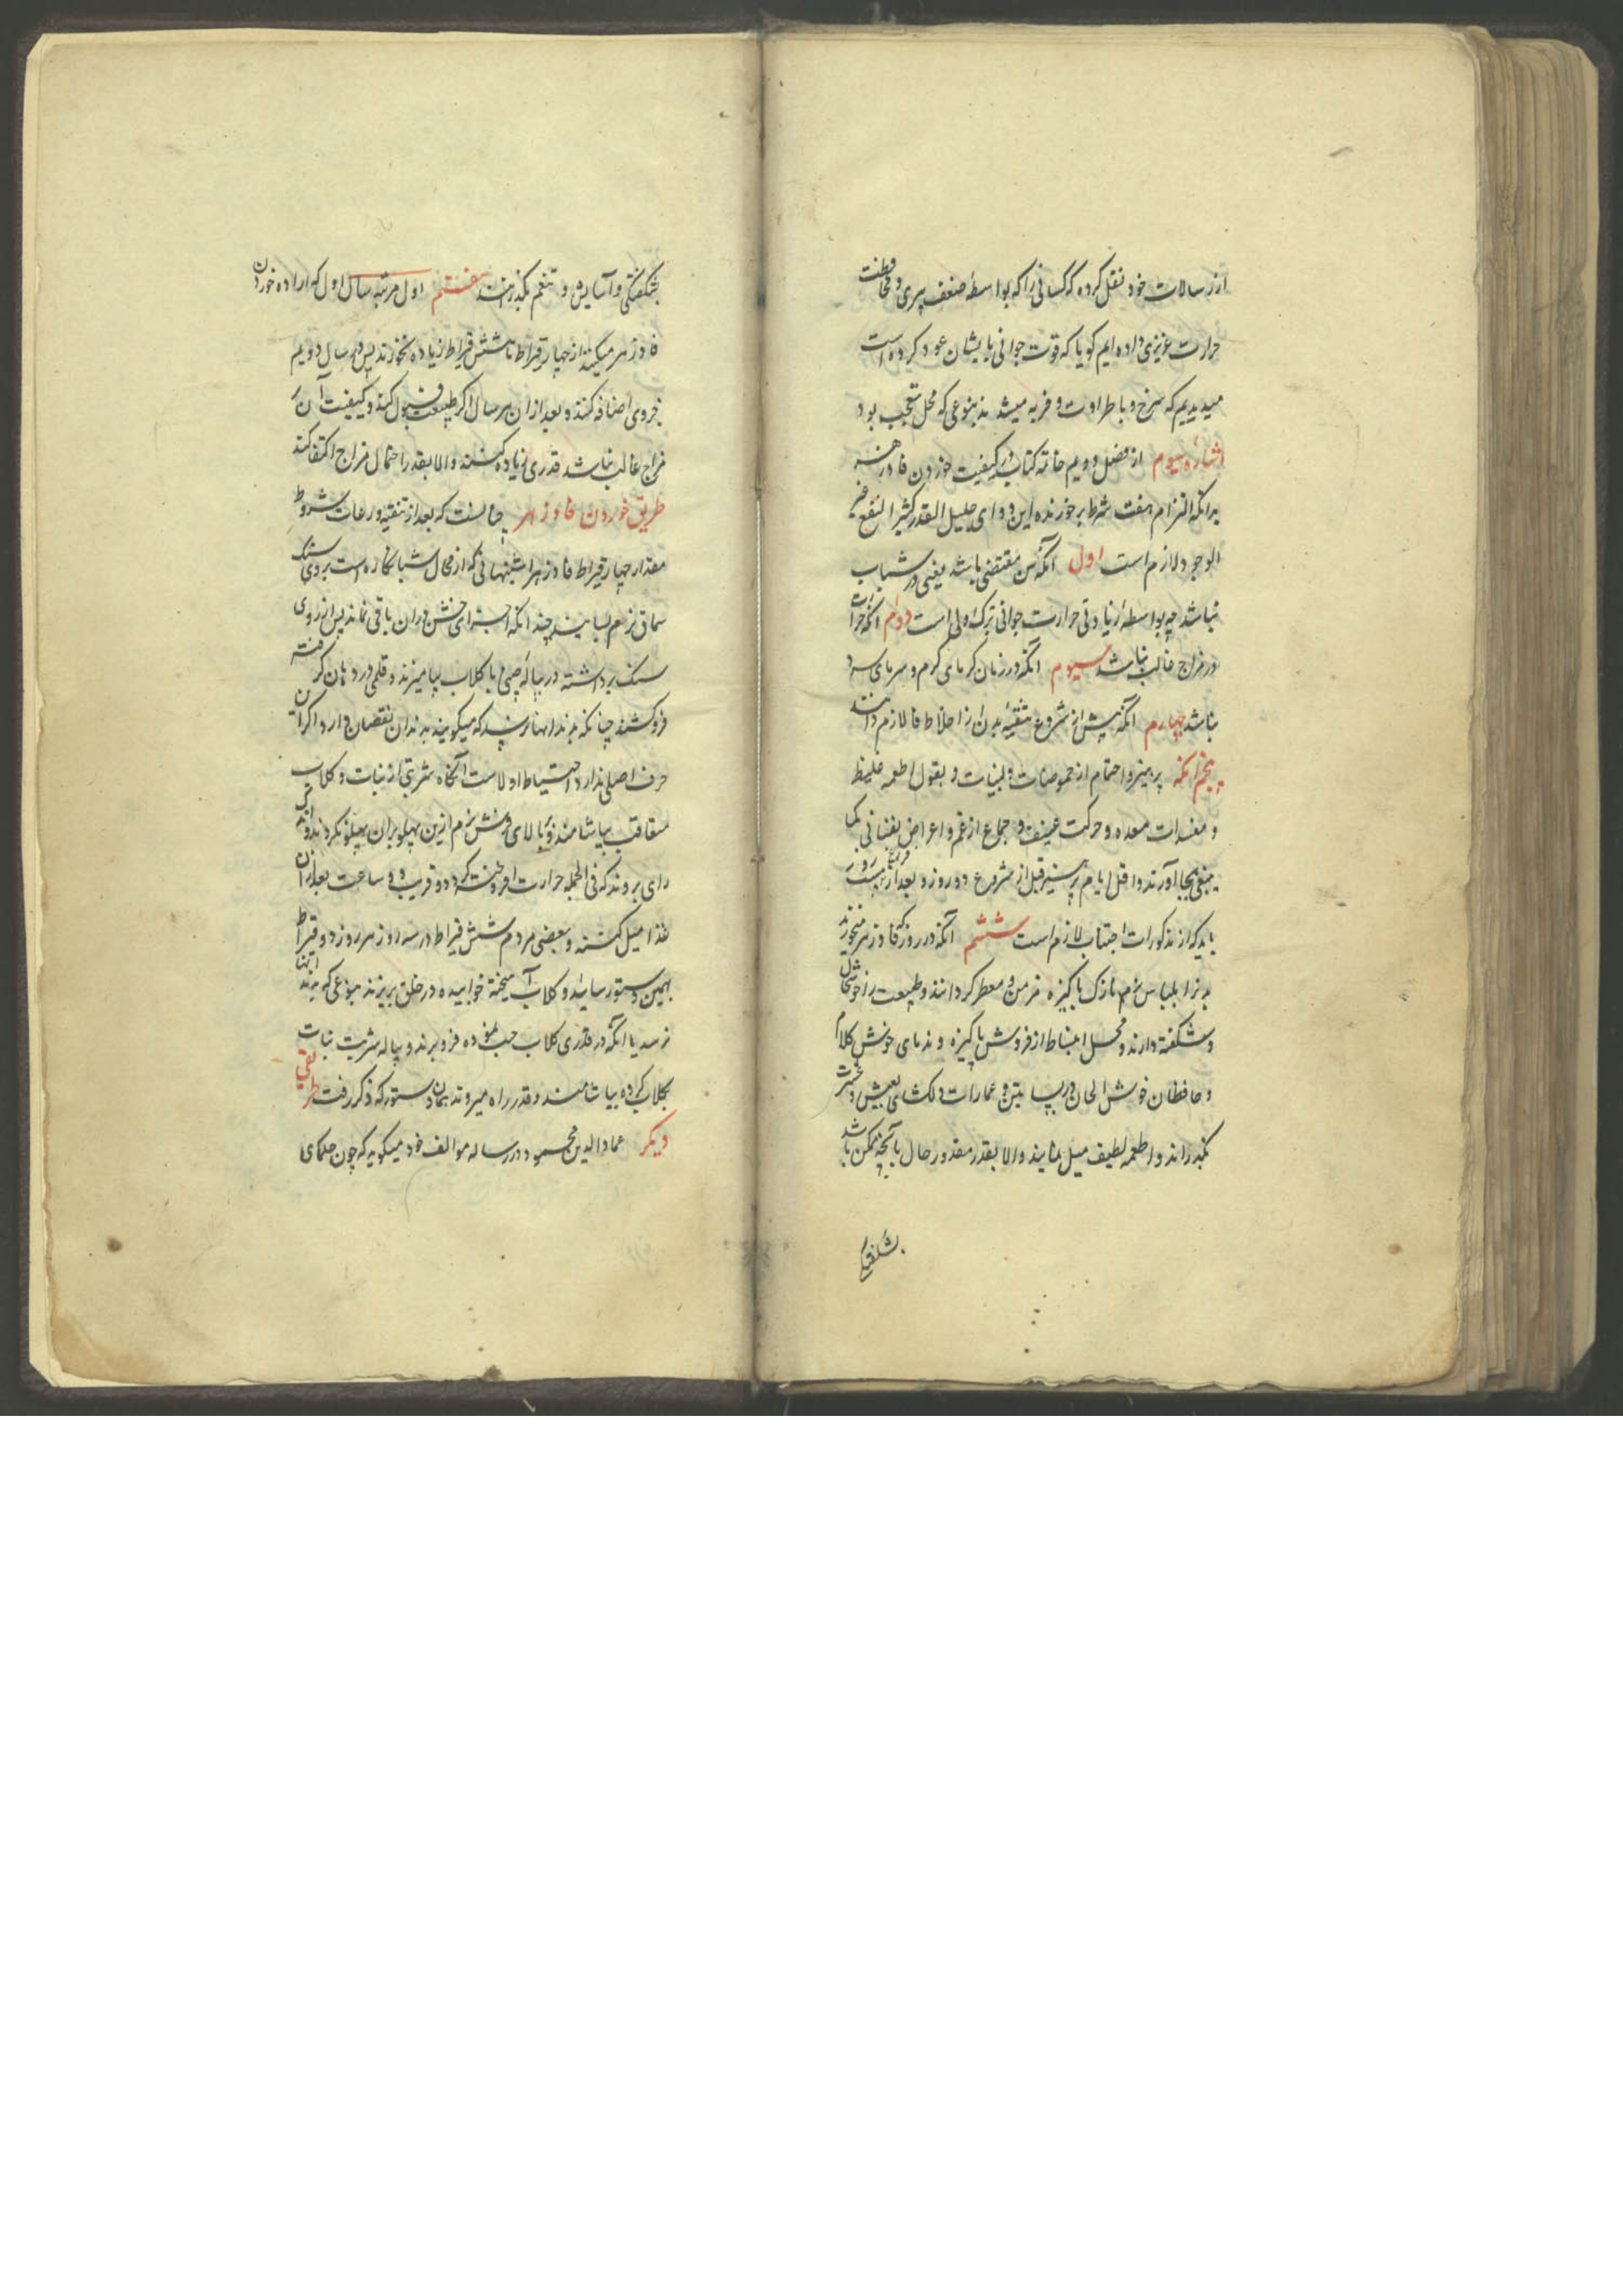 از رسالات خود نقل کرده که کسانی را که بواسطه ضعف پیری و محافظت
حرارت غریزی داده ایم کویا که قوت جوانی بایشان عود کرده است
میدیدیم که سرخ و با طراوت و فربه میشدند بنوعی که محل تعجب بود
اشاره سیوم از فصل دویم خاتمه کتاب در کیفیت خوردن فادزهر
بدانکه التزام هفت شرط بر خورنده این دوای جلیل القدر کثیر النفع
الوجود لازم است اول آنکه سن مقتضی باشد یعنی در شباب
نباشد چه بواسطه زیادتی حرارت جوانی ترک اولی است دوم انکه حرارت
در مزاج غالب نباشد سیوم انکه در زمان کرمای کرم و سرمای سرد
نباشد چهارم انکه پیش از شروع تنقیه بدن را از اخلاط فا لازم دانند
پنجم انکه پرهیز و احتمام از حموضات و لبنیات و بقول اطعمه غلیظ
و مفسدات معده و حرکت عنیف و جماع از غم و اعراض نفسانی کما
ینبغی بجا آورند و اقل ایام پرهیز قبل از شروع دو روز و بعد از فراغ بیست روز
باید که از مذکورات اجتناب لازم است ششم آنکه در روز که فادزهر میخورند
بدنرا بلباس نرم نازک پاکیزه مزین و معطر کردانند و طبیعت را خوشحال
و شکفته دارند و محل انبساط از فروش پاکیزه و ندمای خوش کلام
و حافظان خوش الحان در بساتین و عمارات دلکشای بعیش و عشرت
بگذرانند و اطعمه لطیف میل نمایند و الا بقدر مقدور حال بآنچه ممکن باشد
بشکفتگی
بشکفتگی و آسایش و تنعم بکذرانند هفتم اول مرتبه سال اول که اراده خوردن
فادزهر میکنند از چهار قیراط تا شش قیراط زیاده نخورند پس در سال دویم
بروی اضافه کنند و بعد از ان هر سال اکر طبیعت قبول کند و کیفیت آن بر
مزاج غالب نباشد قدری زیاده کنند و الا بقدر احتمال مزاج اکتفا کنند
طریق خوردن فادزهر چنانست که بعد از تنقیه و رعایت شروط
مقدار چهار قیراط فادزهر امتحانی که از محال شبانکاره است بر روی سنک
سماق نرم بسایند چندانکه اجزای خشن در ان باقی نماند پس از روی
سنک برداشته در پیاله چینی با کلاب بیامیزند و قلمی در دهان کرفته
فروکشند چنانکه بدندانها نرسد که میکویند بدندان نقصان دارد اکر این
حرف اصلی ندارد احتیاط اولاست آنکاه شربتی از نبات و کلاب
متعاقب بیاشامند و بالای فرش نرم ازین پهلو بران پهلو بکردند و اندک
رای بروند که فی الجمله حرارت افروخته کردد و قریب دو ساعت بعد از ان
غذا میل کنند و بعضی مردم شش قیراط در سه روز هر روز دو قیراط
بهمین دستور سائیده و کلاب آمیخته خوابیده در حلق بریزند بنوعی که بدندانها
نرسد یا آنکه در قدری کلاب حب نموده فرو برند و پیاله شربت نبات
بکلاب کرده بیاشامند و قدر راه میروند بهمان دستور که ذکر رفت طریقی
دیکر عماد الدین محمود در رساله موالف خود میکوید که چون حکمای